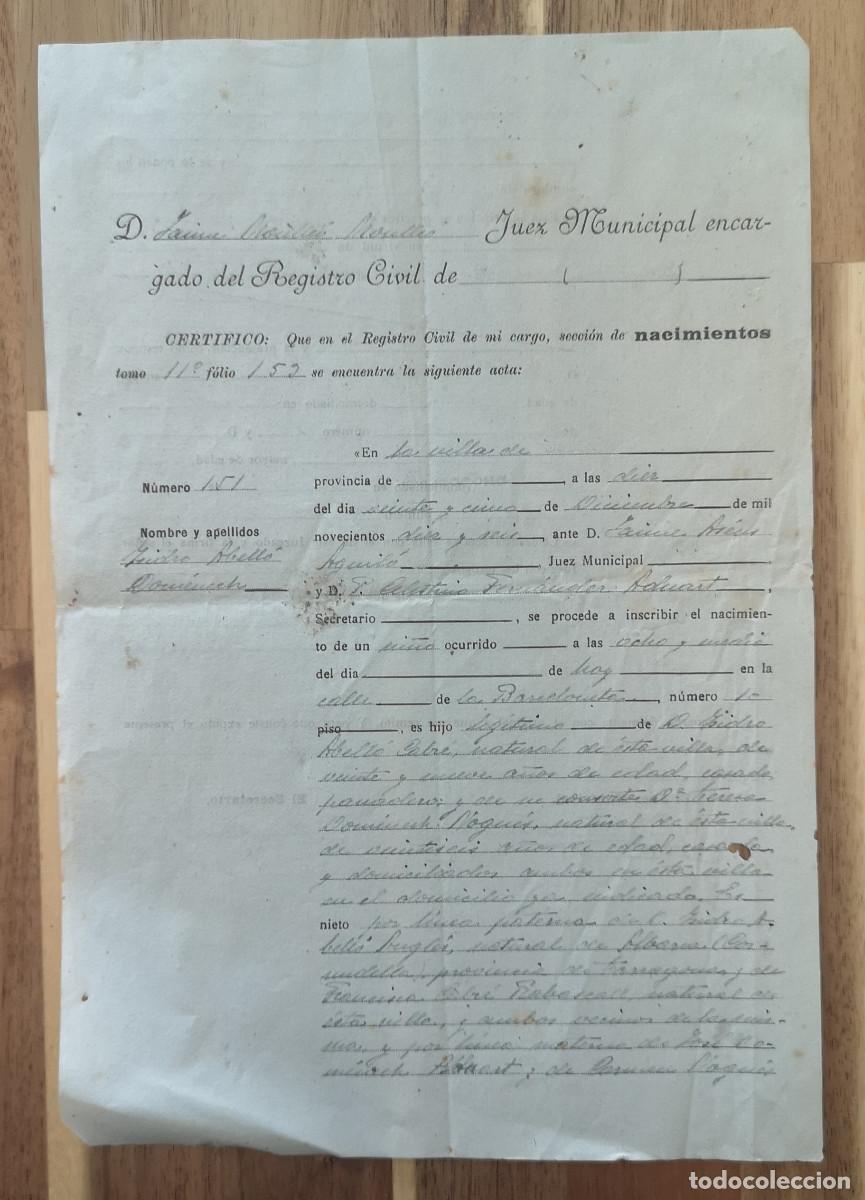 D. Jaime Juez Municipal encar-
gado del Registro Civil de ( )
CERTIFICO: Que en el Registro Civil de mi cargo, sección de nacimientos
tomo 11º fólio 152 se encuentra la siguiente acta:
Número 151
Nombre y apellidos
Isidro Abelló
Doménech
«En la villa de
provincia de , a las diez
del dia veinte y cinco de Diciembre de mil
novecientos diez y seis, ante D. Jaime
Aguiló, Juez Municipal
y D. Celestino Fernández Aduart,
Secretario , se procede a inscribir el nacimien-
to de un niño ocurrido a las ocho y media
del dia de hoy en la
calle de la Barceloneta, número 10
piso , es hijo legítimo de D. Isidro
Abelló Cabré, natural de ésta villa, de
veinte y nueve años de edad, casado,
panadero; y de su consorte Dª Teresa
Doménech Nogués, natural de ésta villa,
de veintiseis años de edad, casada
y domiciliados ambos en ésta villa
en el domicilio ya indicado. Es
nieto por línea paterna de Isidro A-
belló Anglés, natural de Albarca (Cor-
nudella) provincia de Tarragona y de
Francisca Cabré Rabascall, natural de
ésta villa, y ambos vecinos de la mis-
ma, y por línea materna de José Do-
ménech Aduart y de Carmen Nogués
todocoleccion